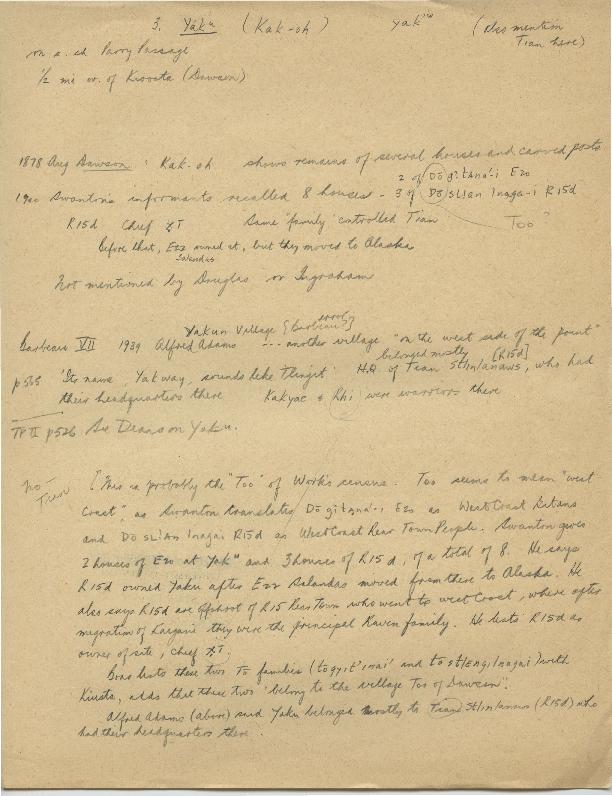 3. Yaku (Kak-oh) Yak (Also mention
Tian here)
on Parry Passage
1/2 mi of Kioosta (Dawson)
1878 Aug Dawson : Kak-oh shows remains of several houses and carved posts
2 of Dōgitana'-i E20
1900 Swanton's informants recalled 8 houses - 3 of Dō sL!an Inaga-i R15d
R15d Chief same 'family' controlled Tian Too?
Before that, E22 owned it, but they moved to Alaska
Salandas
Not mentioned by Douglas or Ingraham
Yakun Village [Barbeau error?]
Barbeau VII 1939 Alfred Adams ... another village "on the west side of the point"
belonged mostly [R15d]
p 565 'Its name, Yakway, sounds like Tlingit' H.Q. of Tian Stlin/anaws, who had
their headquarters there Kakyae & Khi were warriors there
TP II p526 See Deans on Yaku.
no - Tian
[This is probably the "Too" of Work's census. Too seems to mean "west
Coast", as Swanton translates Dō gi tana'-i E20 as West Coast Eetans
and Dō sL!an Inagai R15d as West Coast Rear Town People. Swanton gives
2 houses of E20 at Yaku and 3 houses of R15d, of a total of 8. He says
R15d owned Yaku after E22 Salandas moved from there to Alaska. He
also says R15d are offshoot of R15 Rear Town who went to west coast, where after
migration of Kaigani they were the principal Raven family. He lists R15d as
owner of site, Chief
Boas lists these two To families (togyit'inai' and tostlEngilnagai) with
Kiusta, adds that these two 'belong to the village Too of Dawson'.
Alfred Adams (above) said Yaku belonged mostly to Tian Stlin/anaws (R15d) who
had their headquarters there.